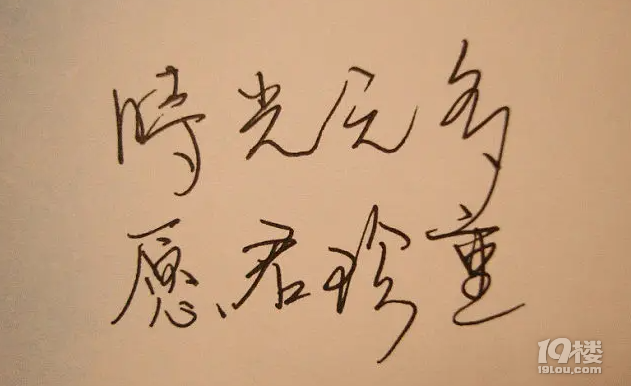 時光无多
愿君珍重
19楼
19lou.com